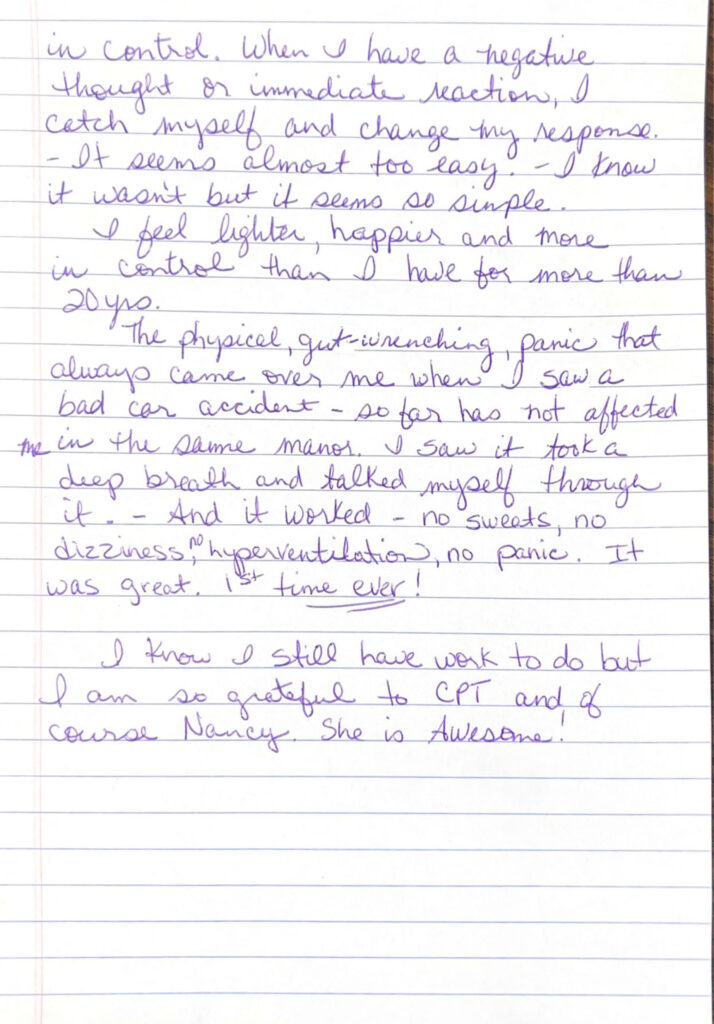 in control. When I have a negative
thought or immediate reaction, I
catch myself and change my response.
- It seems almost too easy. - I know
it wasn't but it seems so simple.
I feel lighter, happier and more
in control than I have for more than
20 yrs.
The physical, gut-wrenching, panic that
always came over me when I saw a
bad car accident - so far has not affected
me in the same manor. I saw it took a
deep breath and talked myself through
it. - And it worked - no sweats, no
dizziness, no hyperventilation, no panic. It
was great. 1st time ever!
I know I still have work to do but
I am so grateful to CPT and of
course Nancy. She is Awesome!